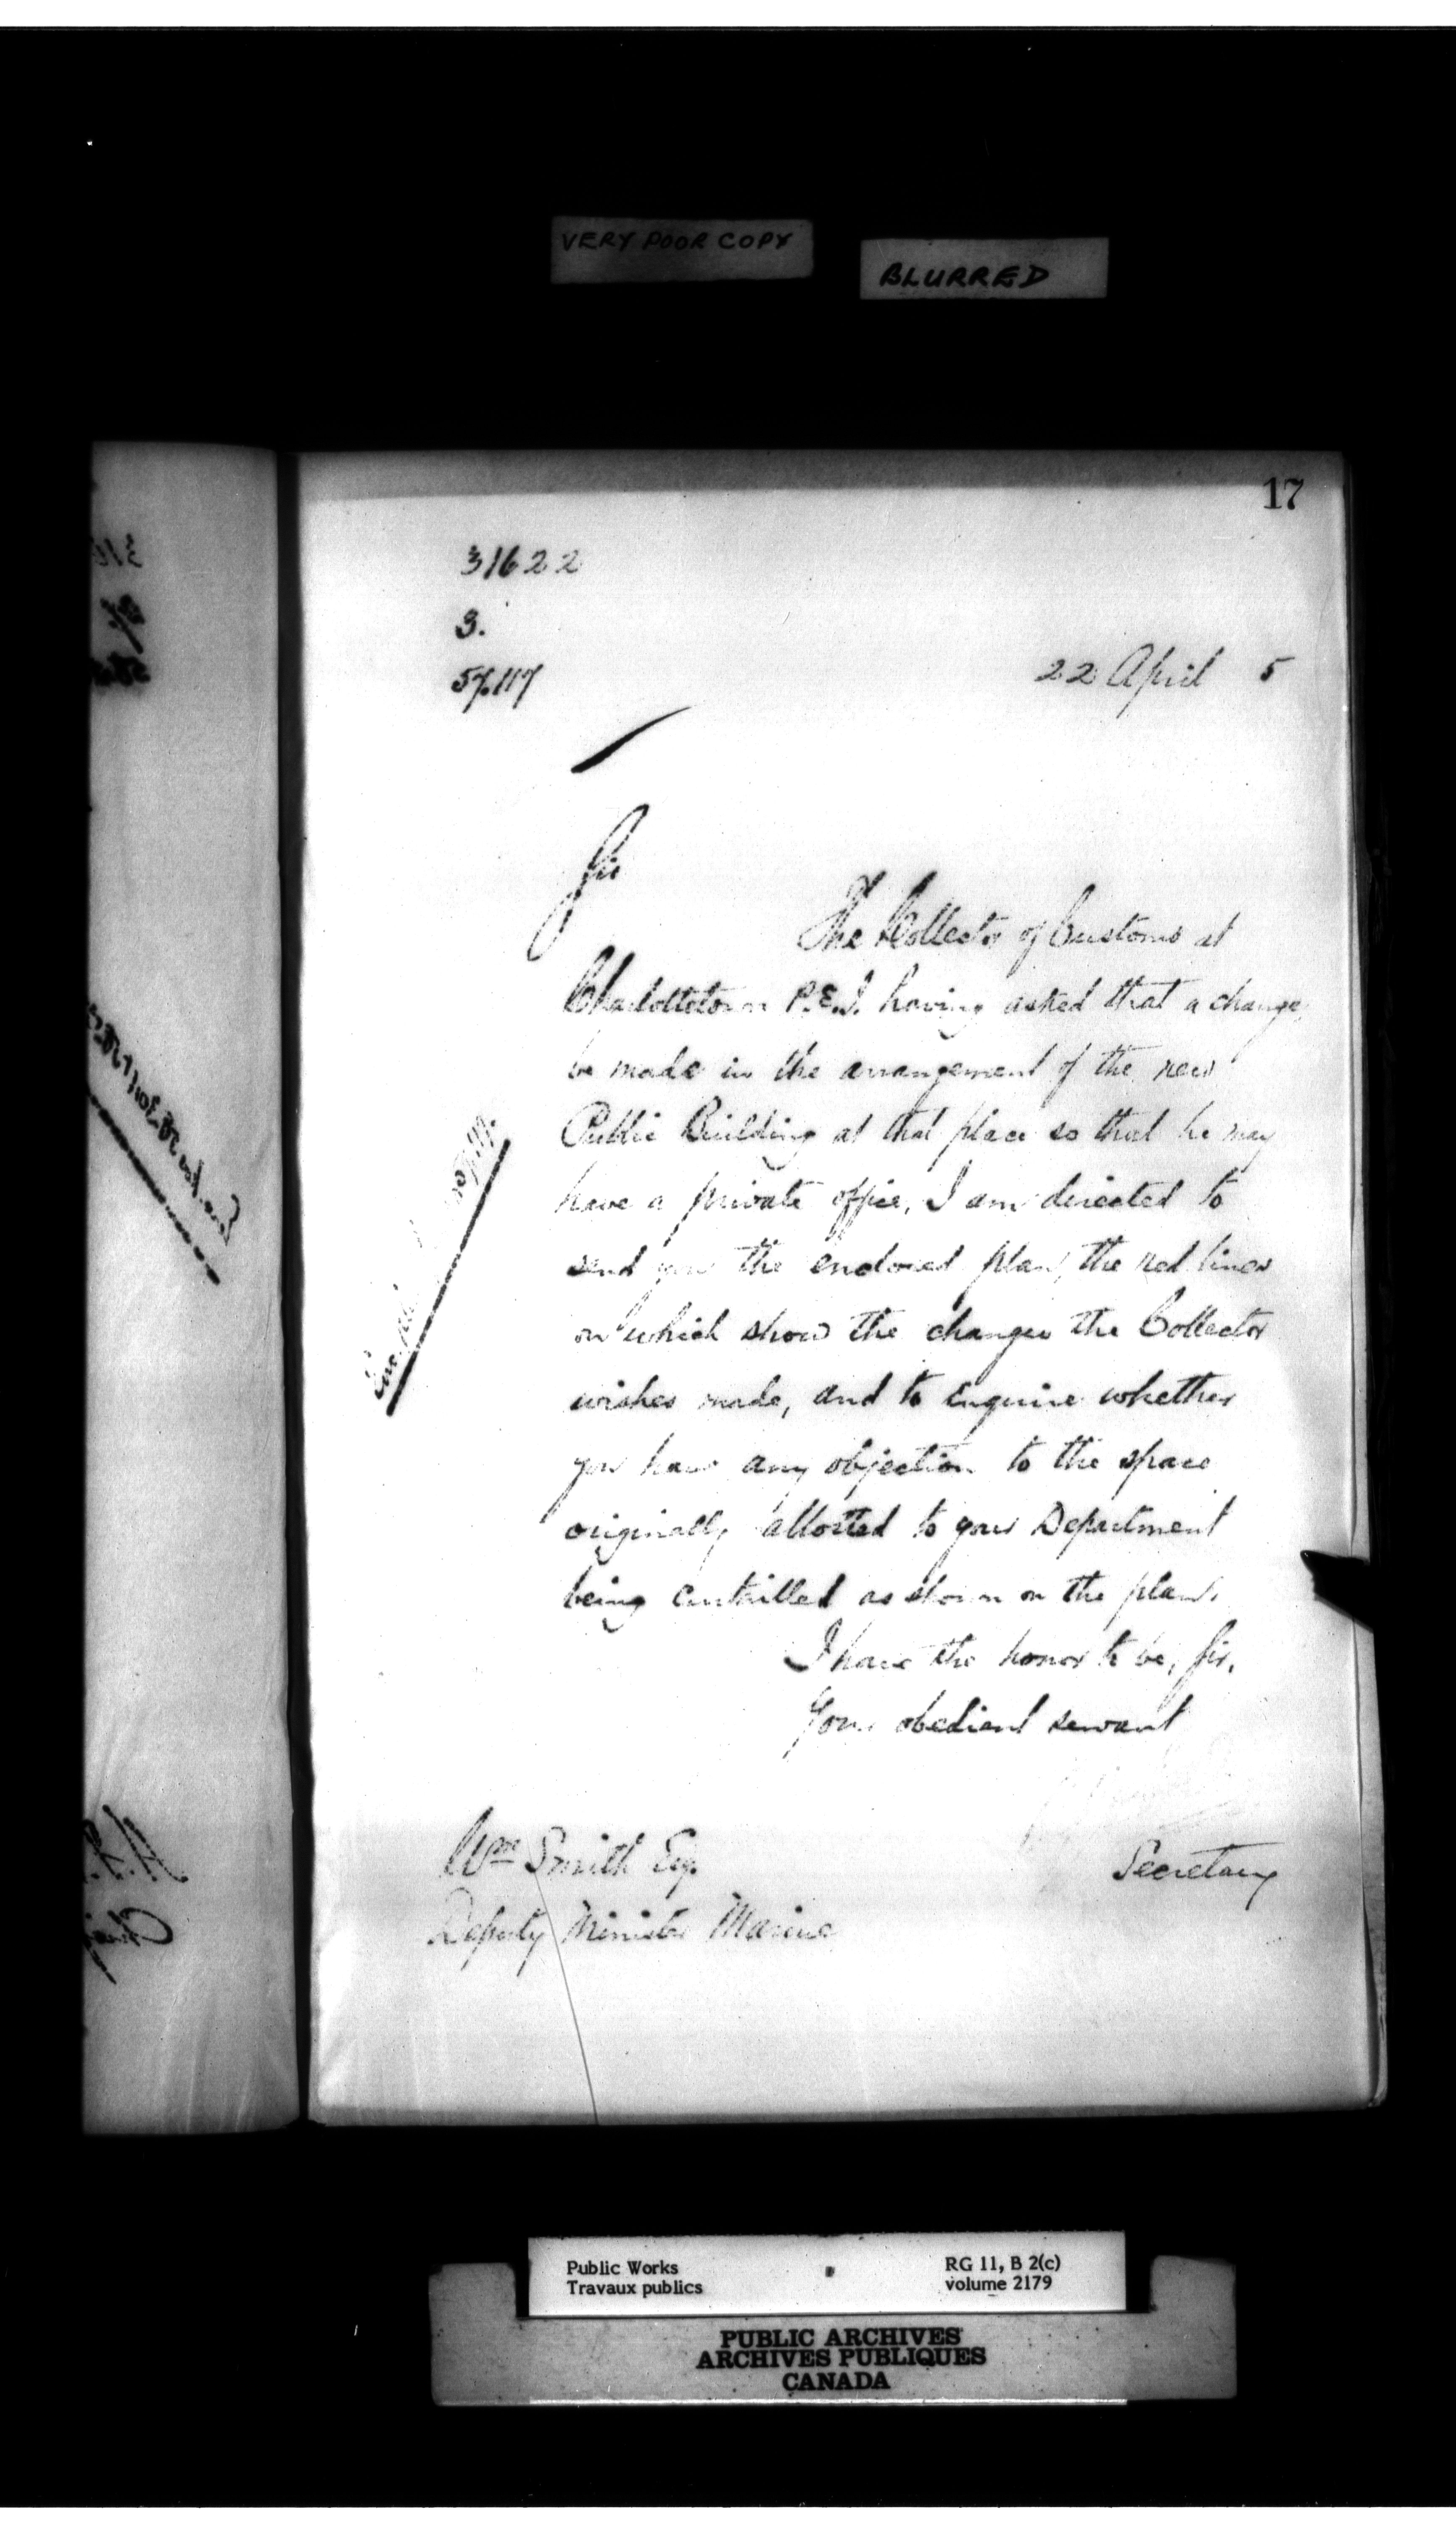 VERY POOR COPY
BLURRED
17
31622
3.
57.117
22 April 5
Sir
The Collector of Customs at
Charlottetown P.E.I. having asked that a change
be made in the arrangement of the new
Public Building at that place so that he may
have a private office, I am directed to
send you the enclosed plan, the red lines
on which show the changes the Collector
wishes made, and to enquire whether
you have any objection to the space
originally allotted to your Department
being curtailled as shown on the plan.
I have the honor to be, Sir,
Your obedient servant
Secretary
Wm Smith Esq.
Deputy Minister Marine
Public Works
Travaux publics
RG 11, B 2(c)
volume 2179
PUBLIC ARCHIVES
ARCHIVES PUBLIQUES
CANADA